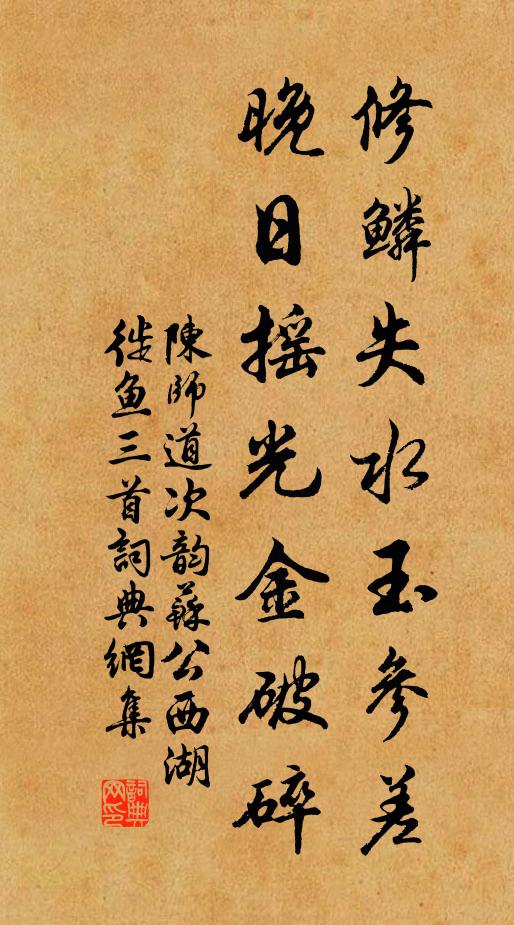 修鳞失水玉參差
晚日摇光金破碎
陳師道次韵蘇公西湖
徙魚三首詞典網集
詞典网印